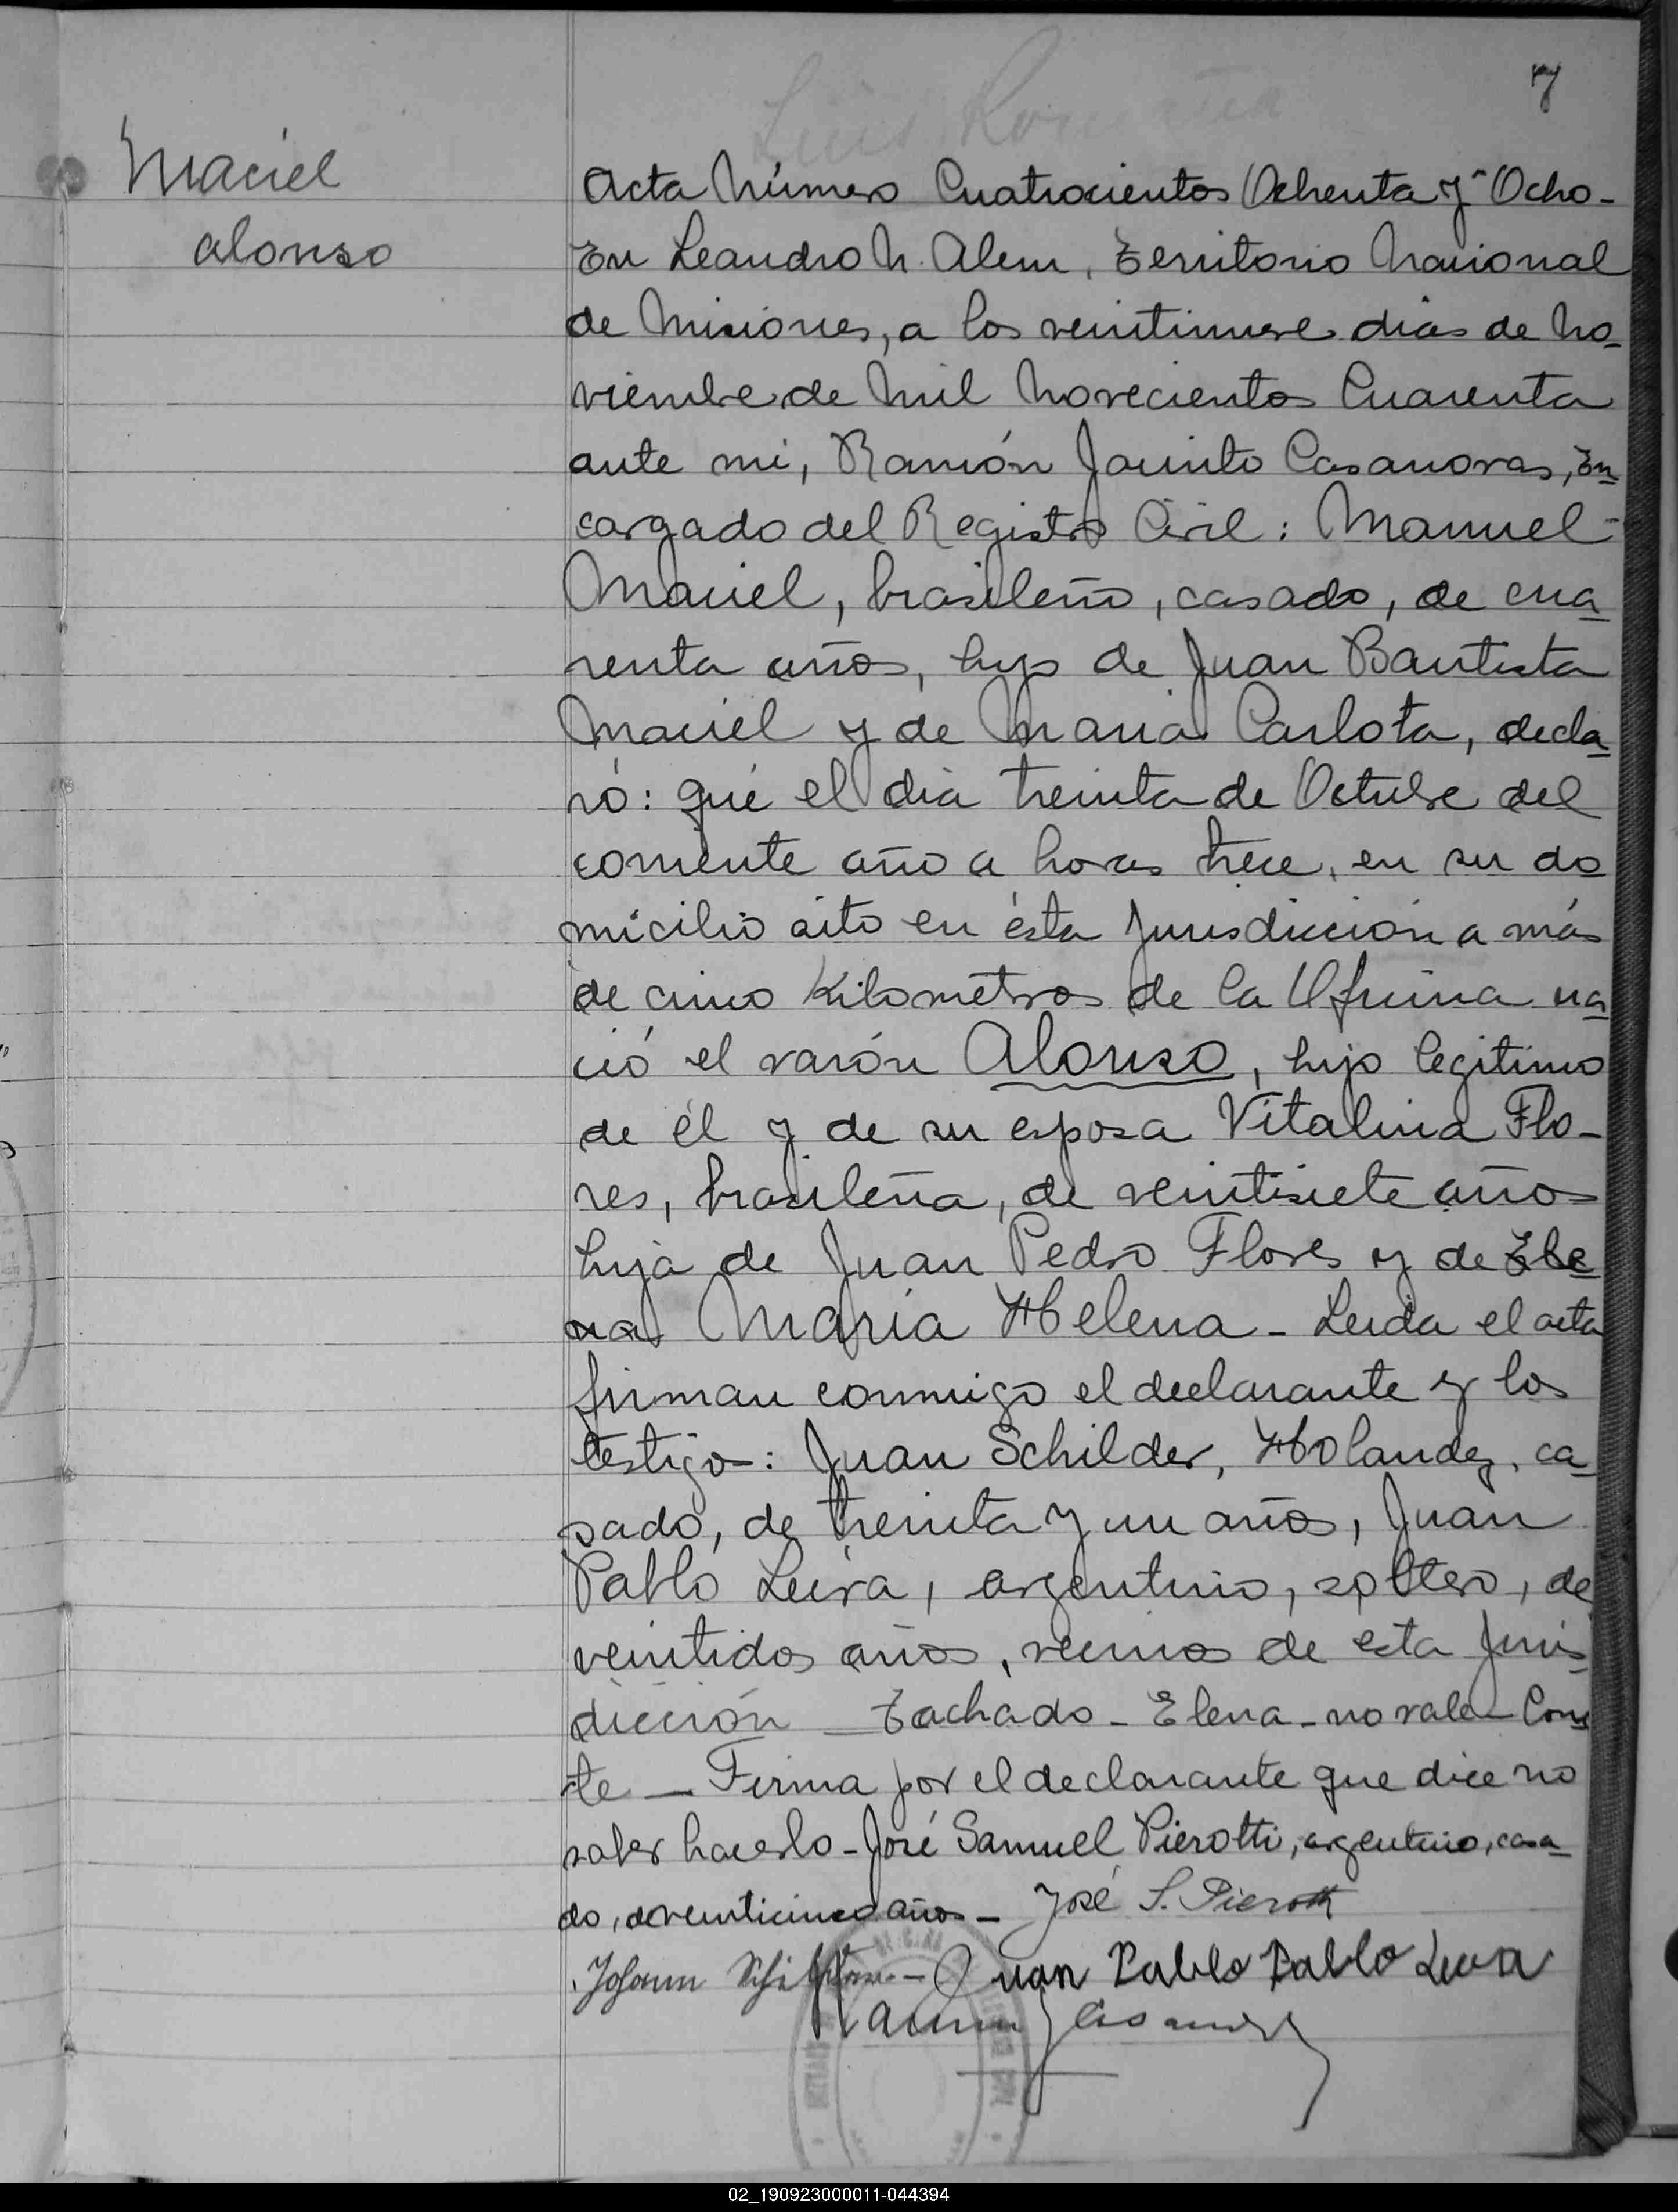 7
Maciel
Alonso
Acta Número Cuatrocientos Ochenta y Ocho-
En Leandro N. Alem, Territorio Nacional
de Misiones, a los veintinueve dias de No-
viembre de Mil Novecientos Cuarenta
ante mi, Ramón Jacinto Casanovas, En-
cargado del Registro Civil: Manuel-
Maciel, brasileño, casado, de cua-
renta años, hijo de Juan Bautista
Maciel y de Maria Carlota, decla-
ró: qué el dia treinta de Octubre del
corriente año a horas trece, en su do-
micilio sito en ésta Jurisdicción a más
de cinco Kilometros de la Oficina na-
ció el varón Alonso, hijo legitimo
de él y de su esposa Vitalina Flo-
res, brasileña, de veintisiete años
hija de Juan Pedro Flores y de Ele-
na Maria Helena - Leida el acta
firman conmigo el declarante y los
testigo: Juan Schilder, Holandez, ca-
sado, de treinta y un años, Juan
Pablo Leiva, argentino, soltero, de
veintidos años, vecinos de esta Juris-
dicción - Tachado - Elena - no vale - Cons-
te - Firma por el declarante que dice no
saber hacerlo - José Samuel Pierotti, argentino, casa-
do, de veinticinco años - José S. Pierotti
Johann - Juan Pablo Pablo Leiva
02_190923000011-044394